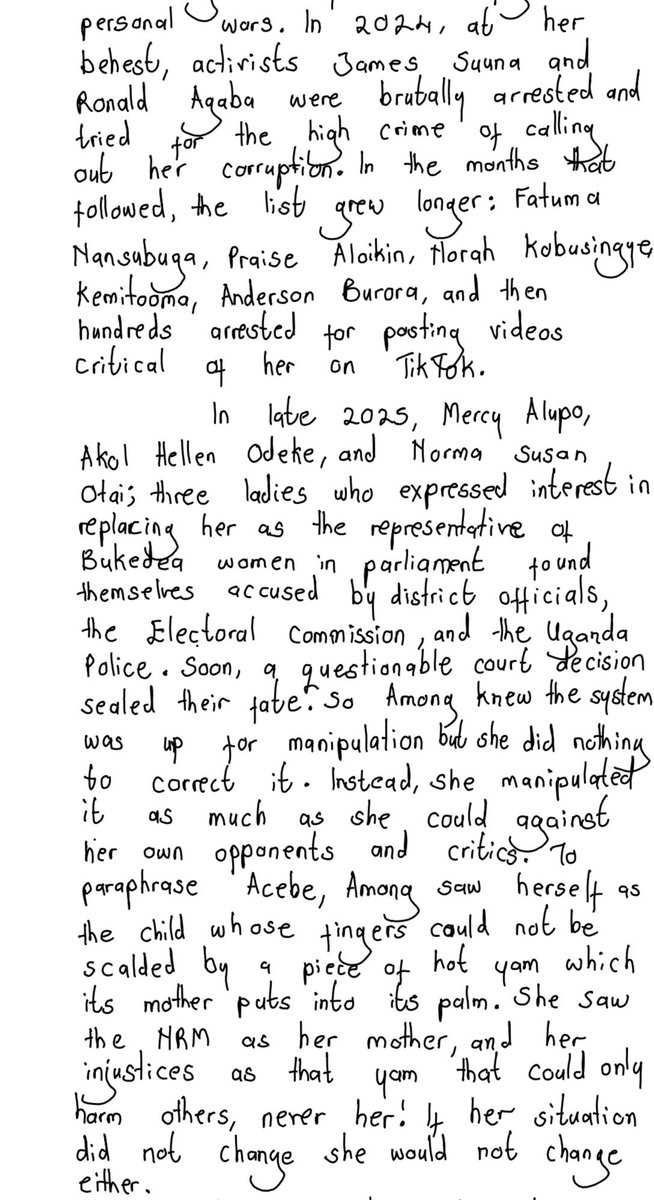 personal wars. In 2024, at her
behest, activists James Suuna and
Ronald Agaba were brutally arrested and
tried for the high crime of calling
out her corruption. In the months that
followed, the list grew longer: Fatuma
Nansubuga, Praise Aloikin, Norah Kobusingye,
Kemitooma, Anderson Burora, and then
hundreds arrested for posting videos
critical of her on TikTok.
In late 2025, Mercy Alupo,
Akol Hellen Odeke, and Norma Susan
Otai; three ladies who expressed interest in
replacing her as the representative of
Bukedea women in parliament found
themselves accused by district officials,
the Electoral Commission, and the Uganda
Police. Soon, a questionable court decision
sealed their fate. So Among knew the system
was up for manipulation but she did nothing
to correct it. Instead, she manipulated
it as much as she could against
her own opponents and critics. To
paraphrase Acebe, Among saw herself as
the child whose fingers could not be
scalded by a piece of hot yam which
its mother puts into its palm. She saw
the NRM as her mother, and her
injustices as that yam that could only
harm others, never her! If her situation
did not change she would not change
either.